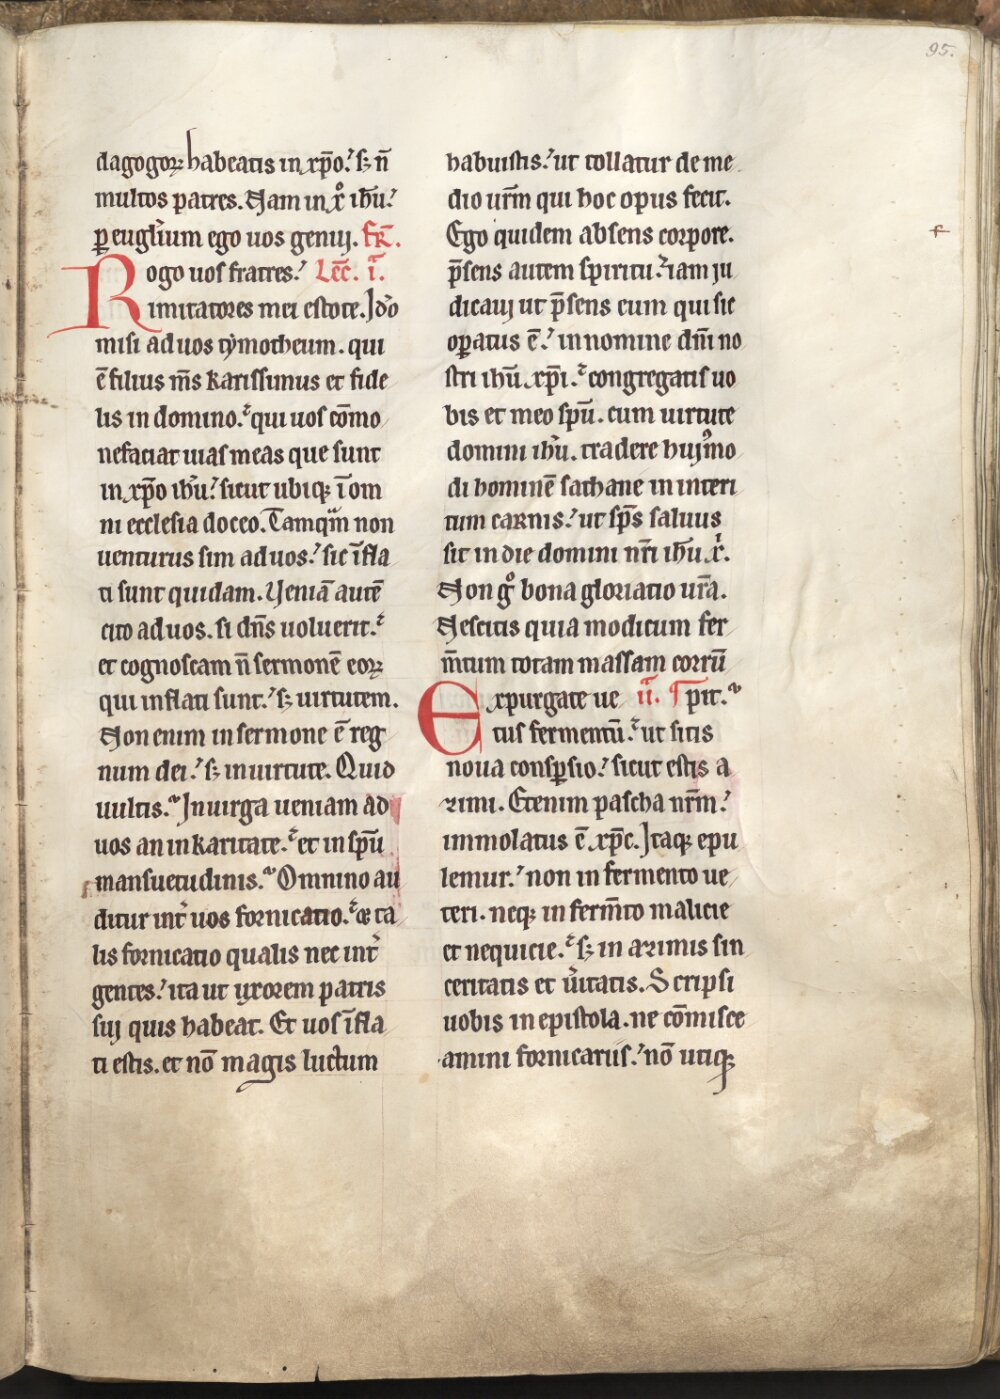 95.
dagogoꝝ habeatis in xp̄o. sꝫ n̄
multos patres. Nam in x̊ ih̄u.
ꝑ eugl̄ium ego uos genuj. Fr̄.
Rogo uos fratres. Lēc. i.
imitatores mei estote. Jdo
misi ad uos tẏmotheum. qui
ē filius m̄s karissimus et fide
lis in domino. qui uos cōmo
nefaciat uias meas que sunt
in xp̄o ih̄u. sicut ubiqꝫ ī om
ni ecclesia doceo. Tamqm̄ non
uenturus sim ad uos. sic īfla
ti sunt quidam. Ueniā autē
cito ad uos. si dn̄s uoluerit.
et cognoscam n̄ sermonē eoꝝ
qui inflati sunt. sꝫ uirtutem.
Non enim in sermone ē reg
num dei. sꝫ in uirtute. Quid
uultis. Jn uirga ueniam ad
uos an in karitate. et in spū
mansuetudinis. Omnino au
ditur int̄ uos fornicatio. et ta
lis fornicatio qualis nec int̄
gentes. ita ut uxorem patris
suj quis habeat. Et uos īfla
ti estis. et nō magis luctum
habuistis. ut tollatur de me
dio ur̄m qui hoc opus fecit.
Ego quidem absens corpore.
p̄sens autem spiritu. iam ju
dicauj ut p̄sens eum qui sic
oꝑatus ē. in nomine dn̄i no
stri ih̄u xp̄i. congregatis uo
bis et meo spū. cum uirtute
domini ih̄u. tradere hujͦmo
di hominē sathane in interi
tum carnis. ut sp̄s saluus
sit in die domini nr̄i ih̄u x̄.
Non gͦ bona gloriatio ur̄a.
Nescitis quia modicum fer
m̄tum totam massam corrū
Expurgate ue ii. ¶ pit.
tus fermentū. ut sitis
noua consꝑsio. sicut estis a
zimi. Etenim pascha nr̄m.
immolatus ē xp̄c. Jtaqꝫ epu
lemur. non in fermento ue
teri. neqꝫ in ferm̄to malicie
et nequicie. sꝫ in azimis sin
ceritatis et ūitatis. Scripsi
uobis in epistola. ne cōmisce
amini fornicariis. nō utiqꝫ